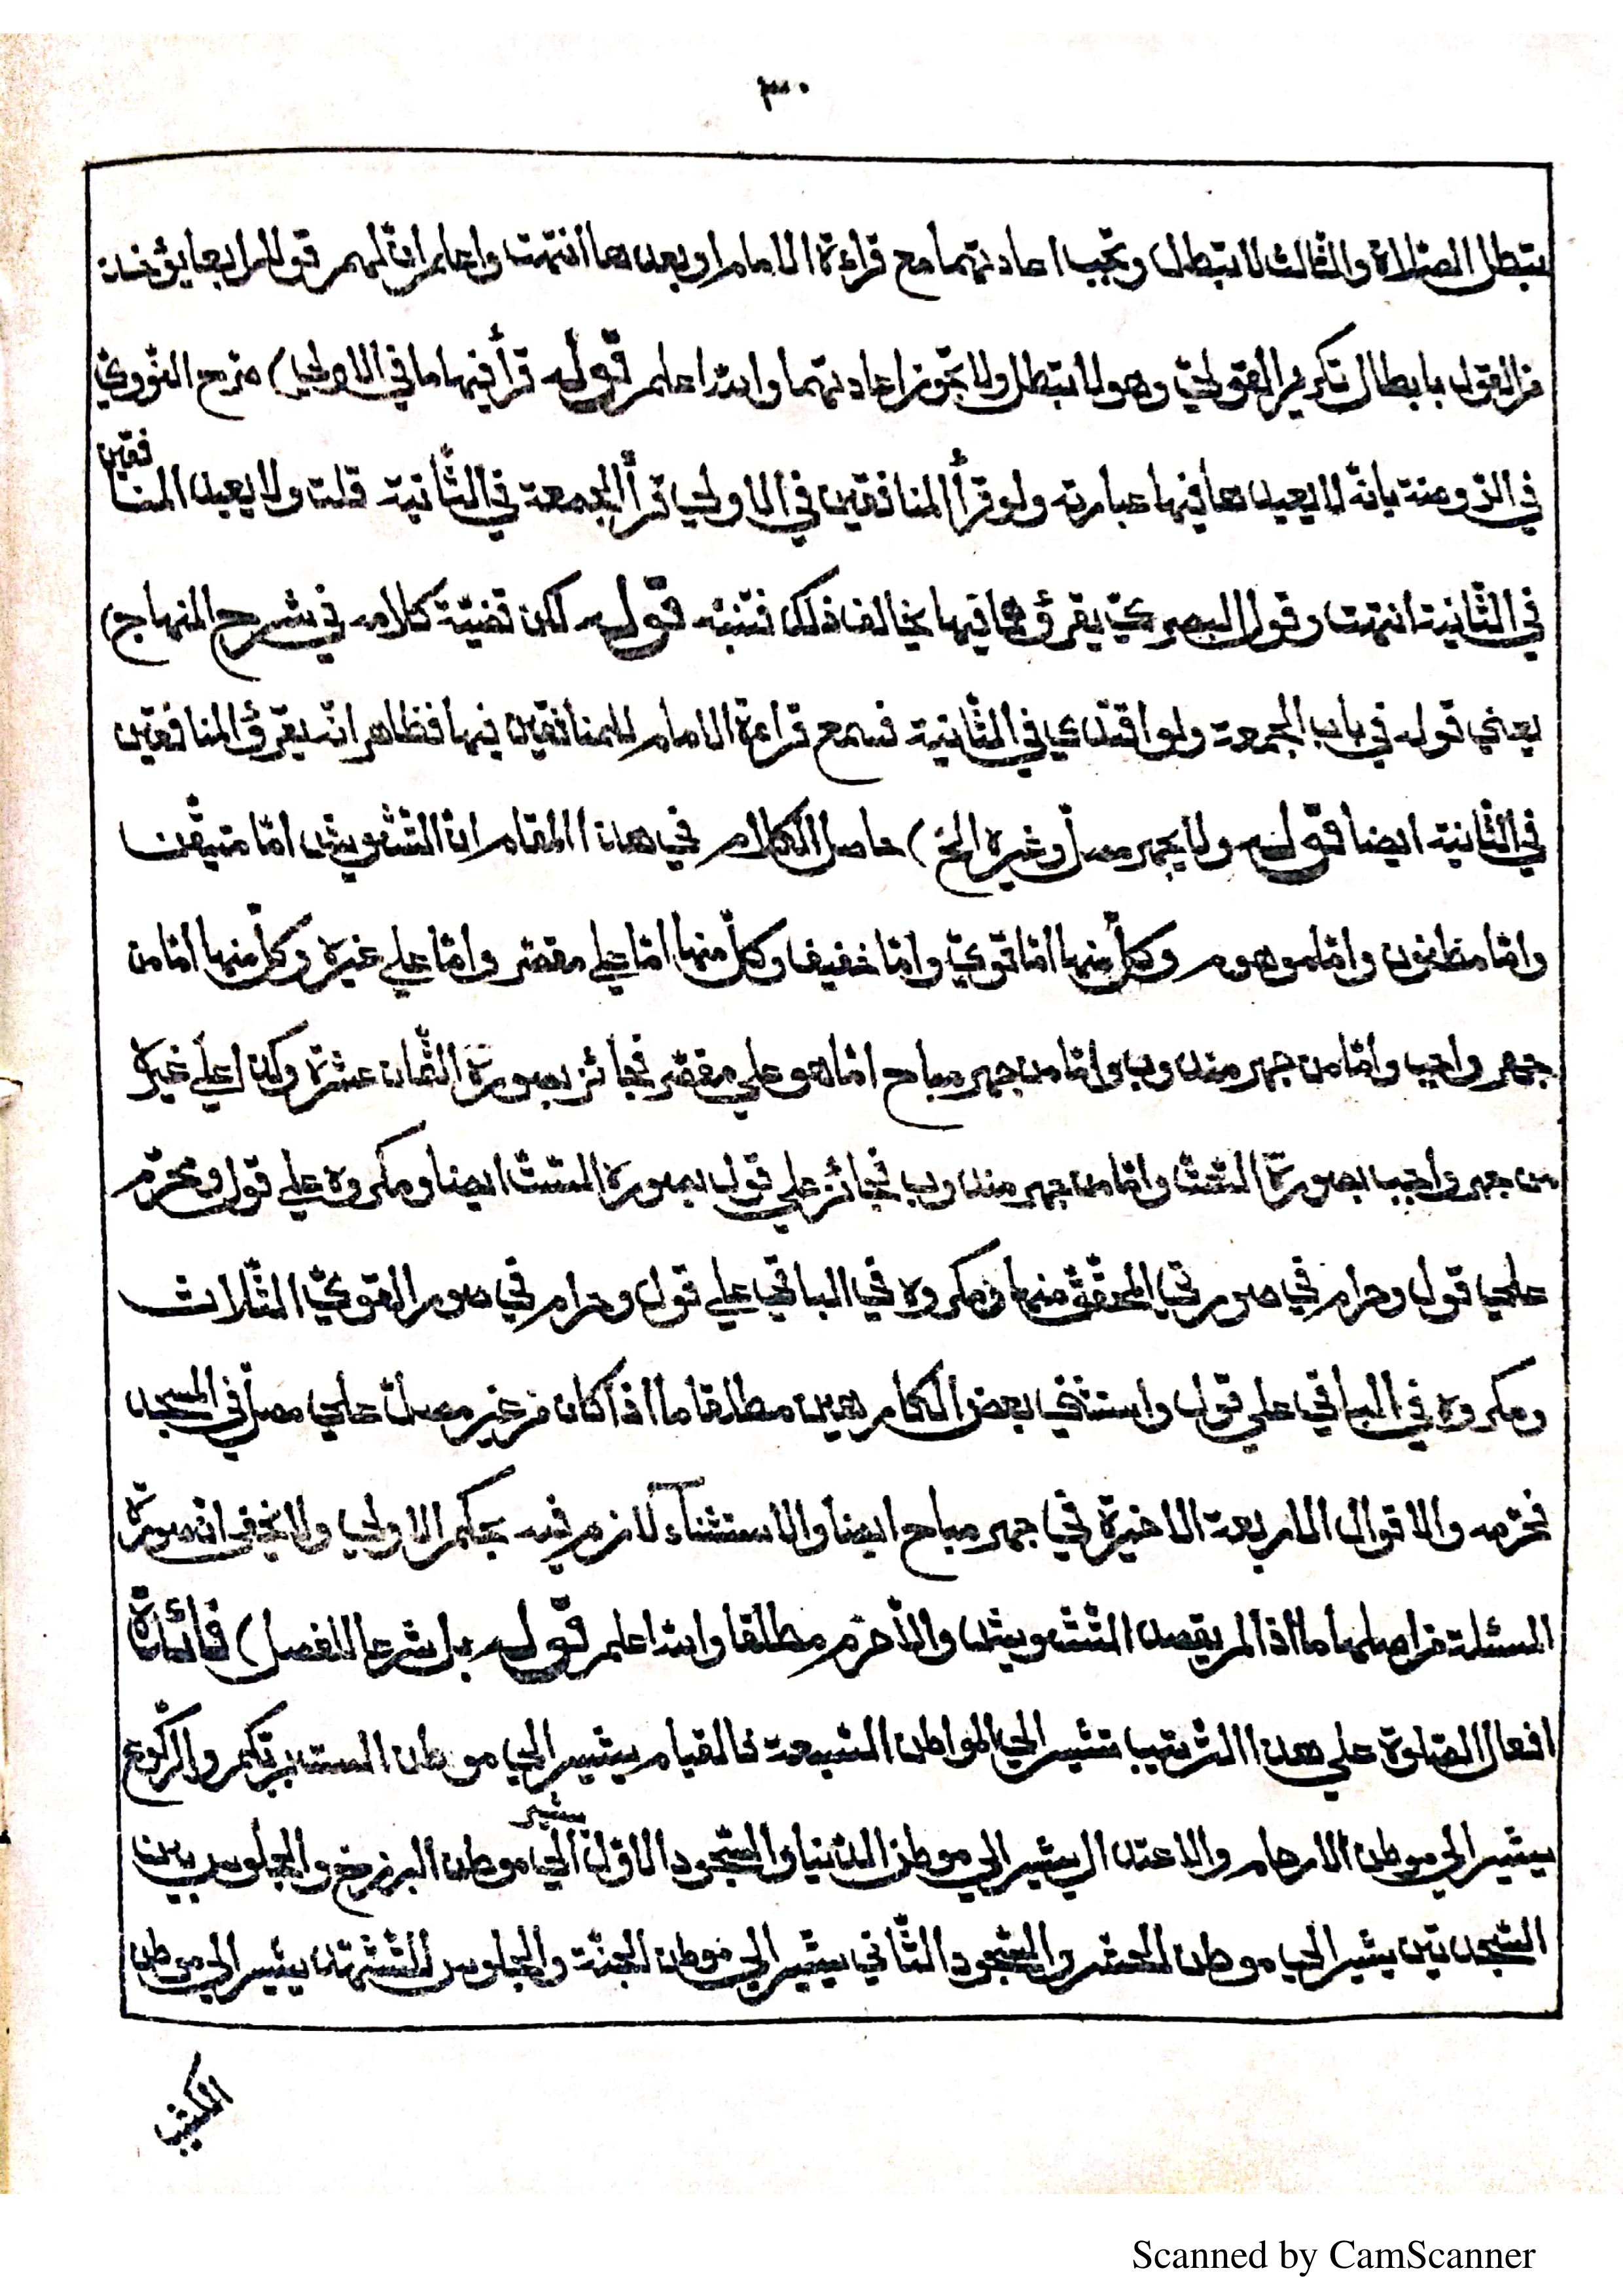 ٣٠
تبطل الصّلاة والثّالث لا تبطل وتجب اعادتهما مع قراءة الامام او بعدها انتهت واعلم انّ لهم قولا رابعا يؤخذ
من القول بابطال تكرير القوليّ وهو لا تبطل ولا تجوز اعادتهما والله اعلم قوله قرأ فيهما ما في الاولى) صرح النّوويّ
في الرّوضة بانّه لا يعيدها فيها عبارته ولو قرأ المنافقين في الاولى قرأ الجمعة في الثّانية قلت ولا يعيد المنافقين
في الثّانية انتهت وقول البصريّ يقرؤها فيها يخالف ذلك فتنبّه قوله لكن قضيّة كلامه في شرح المنهاج)
يعني قوله في باب الجمعة ولو اقتدى في الثّانية فسمع قراءة الامام للمنافقين فيها فظاهر انّه يقرؤ المنافقين
في الثّانية ايضا قوله ولا يجهر مصلّ وغيره الخ) حاصل الكلام في هذا المقام انّ التّشويش امّا متيقّن
وامّا مظنون وامّا موهوم وكلّ منها امّا قويّ وامّا خفيف وكلّ منها امّا على مقصّر وامّا على غيره وكلّ منها امّا من
جهر واجب وامّا من جهر مندوب وامّا من جهر مباح امّا هو على مقصّر فجائز بصورة الثّمان عشرة وكذا على غيره
من جهر واجب بصورة السّتّ وامّا من جهر مندوب فجائز على قول بصورة السّتّ ايضا ومكروه على قول ومحرّم
على قول وحرام في صورتي المحقّق منها ومكروه في الباقي على قول وحرام في صور القويّ الثّلاث
ومكروه في الباقي على قول واستثنى بعض الكلام بعين مطلقا ما اذا كان من غير مصلّ على مصلّ في المسجد
فحرّمه والاقوال الاربعة الاخيرة في جهر مباح ايضا والاستثناء لازم فيه بحكم الاولى ولا يخفى انّ صورة
المسئلة من اصلها ما اذا لم يقصد التّشويش والّا حرم مطلقا والله اعلم قوله بل شرعا للفصل) فائدة
افعال الصّلوة على هذا التّرتيب تشير الى المواطن السّبعة فالقيام يشير الى موطن الست بربّكم والرّكوع
يشير الى موطن الارحام والاعتدال يشير الى موطن الدّنيا والسّجود الاوّل يشير الى موطن البرزخ والجلوس بين
السّجدتين يشير الى موطن الحشر والسّجود الثّاني يشير الى موطن الجنّة والجلوس للتّشهّد يشير الى موطن
الكثيب
Scanned by CamScanner